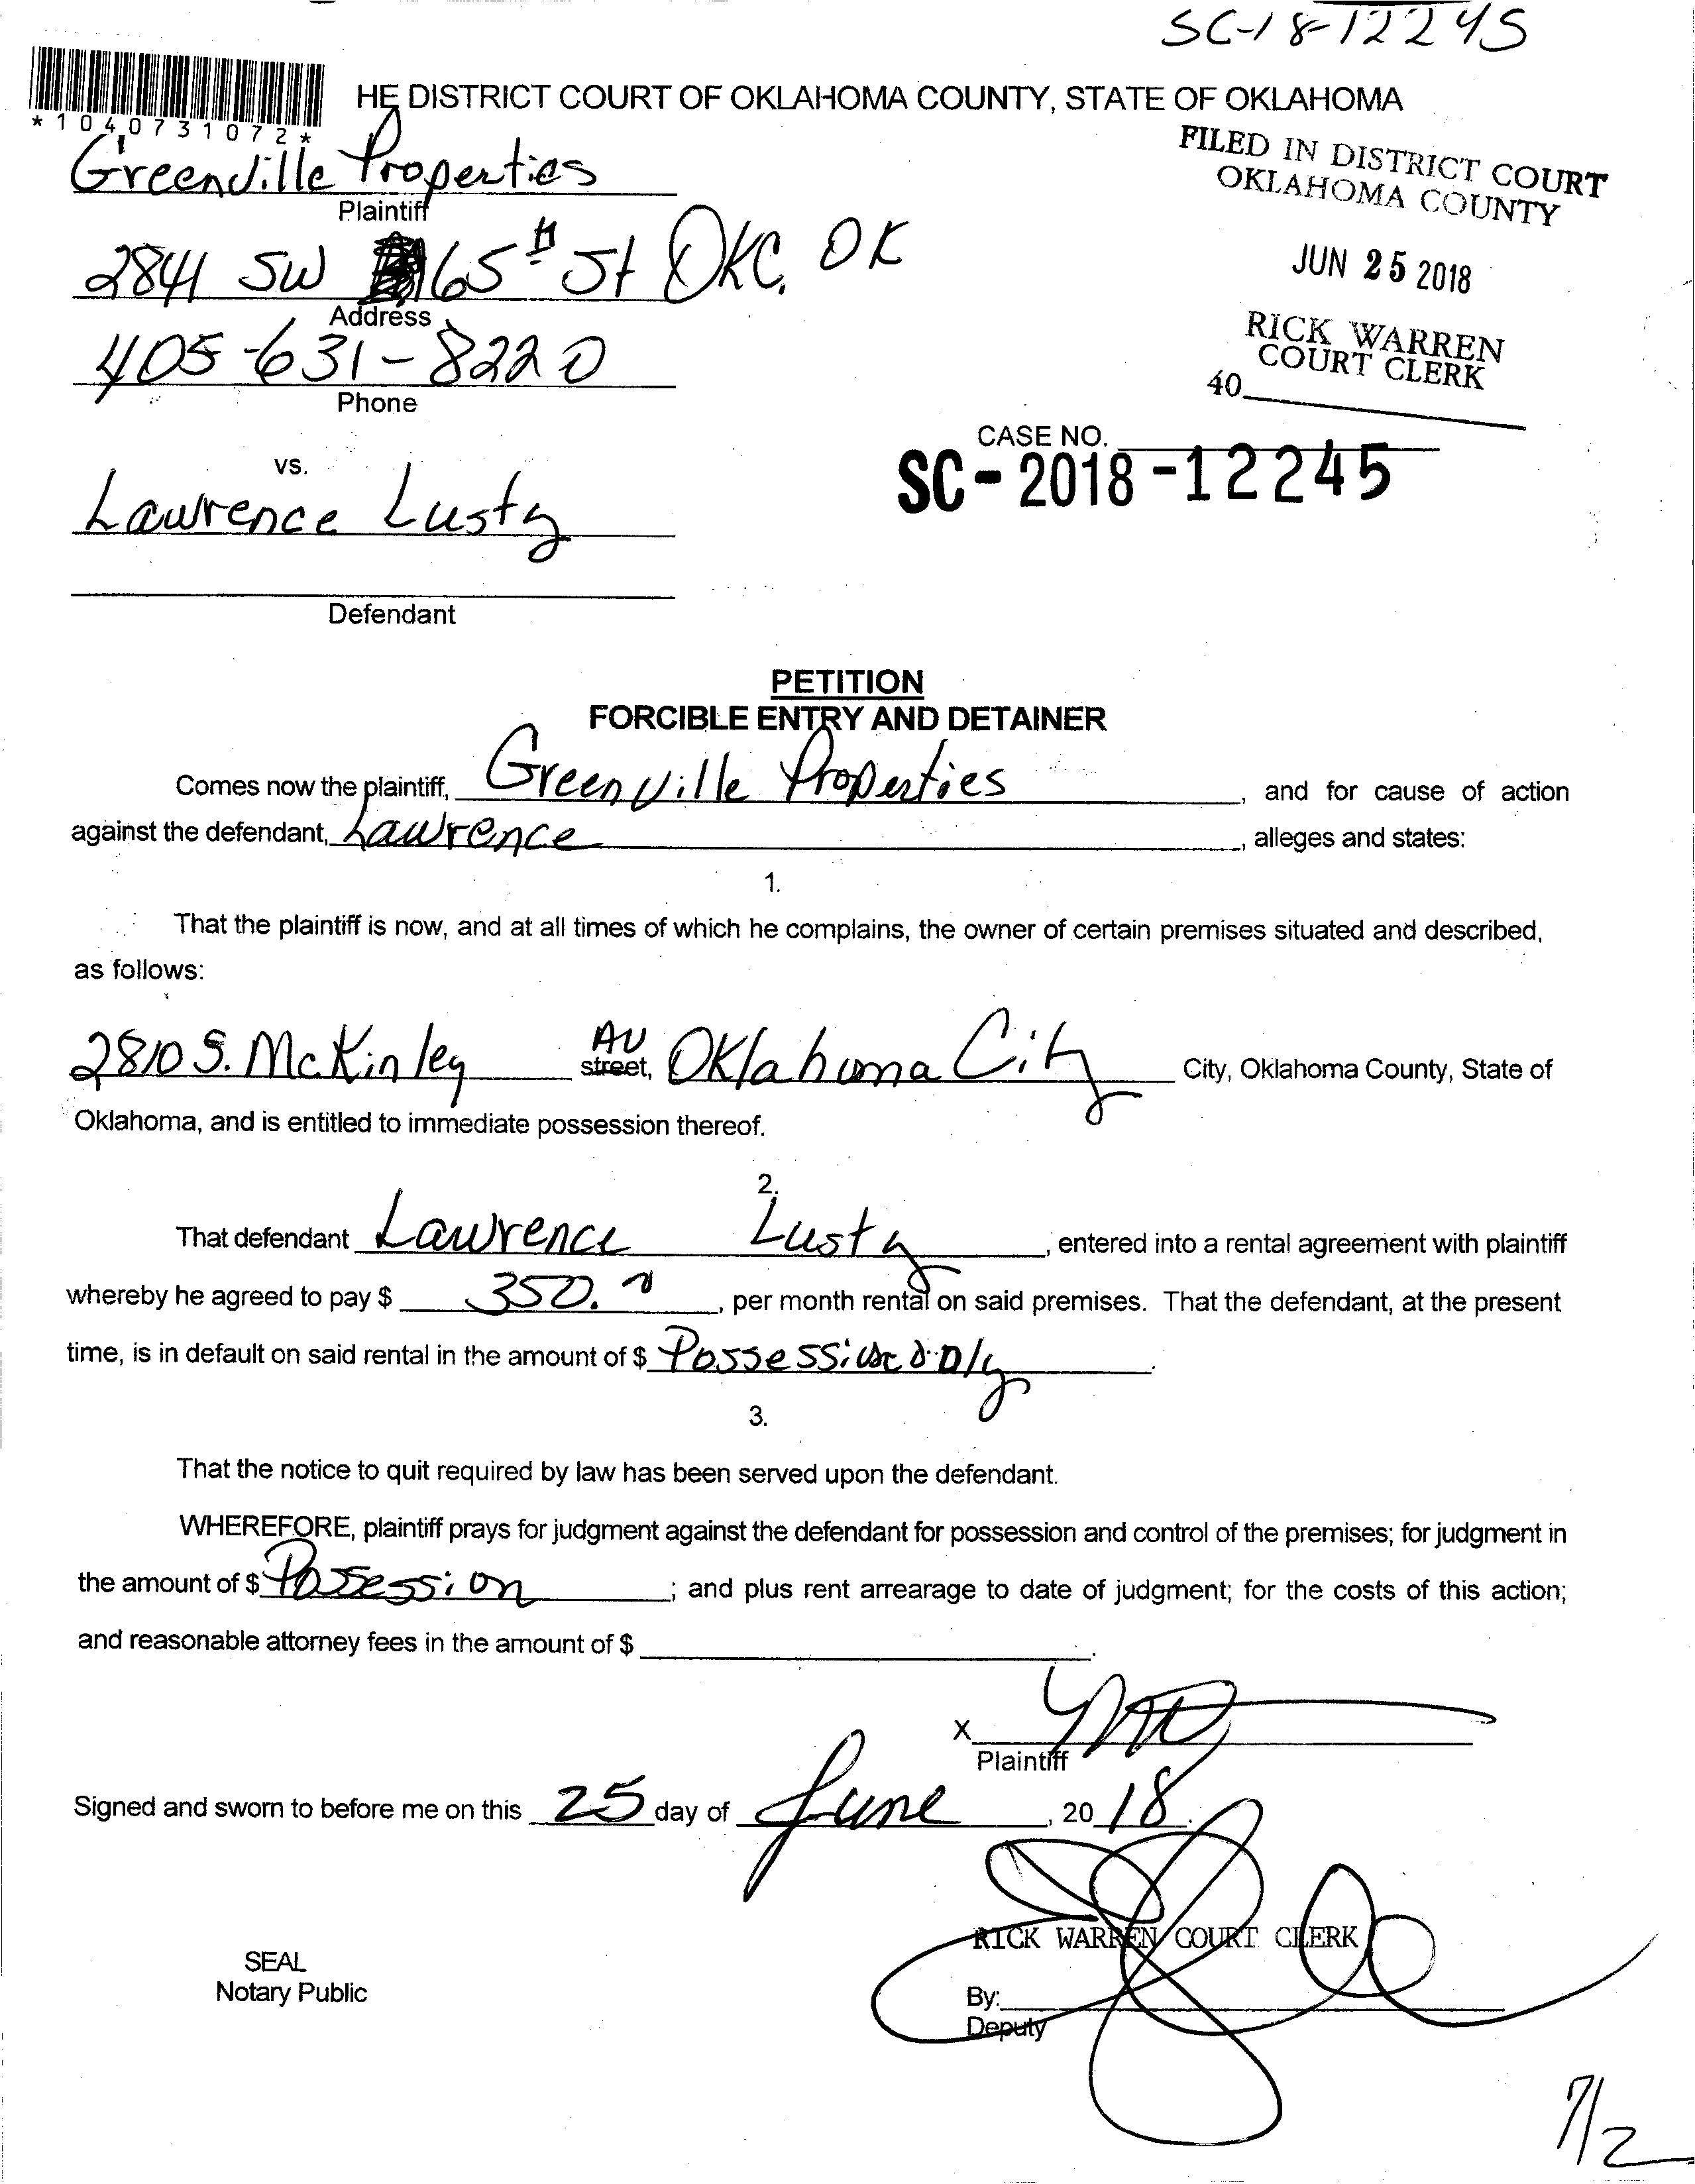 SC-18-12245
HE DISTRICT COURT OF OKLAHOMA COUNTY, STATE OF OKLAHOMA
*1040731072*
FILED IN DISTRICT COURT
OKLAHOMA COUNTY
JUN 25 2018
RICK WARREN
COURT CLERK
40
Greenville Properties
Plaintiff
2841 SW 65th St OKC, OK
Address
405-631-8220
Phone
vs.
CASE NO.
SC-2018-12245
Lawrence Lusty
Defendant
PETITION
FORCIBLE ENTRY AND DETAINER
Comes now the plaintiff, Greenville Properties, and for cause of action
against the defendant, Lawrence, alleges and states:
1.
That the plaintiff is now, and at all times of which he complains, the owner of certain premises situated and described,
as follows:
2810 S. McKinley AV street, Oklahoma City City, Oklahoma County, State of
Oklahoma, and is entitled to immediate possession thereof.
2.
That defendant Lawrence Lusty, entered into a rental agreement with plaintiff
whereby he agreed to pay $ 350., per month rental on said premises. That the defendant, at the present
time, is in default on said rental in the amount of $ only.
3.
That the notice to quit required by law has been served upon the defendant.
WHEREFORE, plaintiff prays for judgment against the defendant for possession and control of the premises; for judgment in
the amount of $ Possession; and plus rent arrearage to date of judgment; for the costs of this action;
and reasonable attorney fees in the amount of $.
X
Plaintiff
Signed and sworn to before me on this 25 day of June, 2018.
RICK WARREN COURT CLERK
SEAL
Notary Public
By:
Deputy
7/2